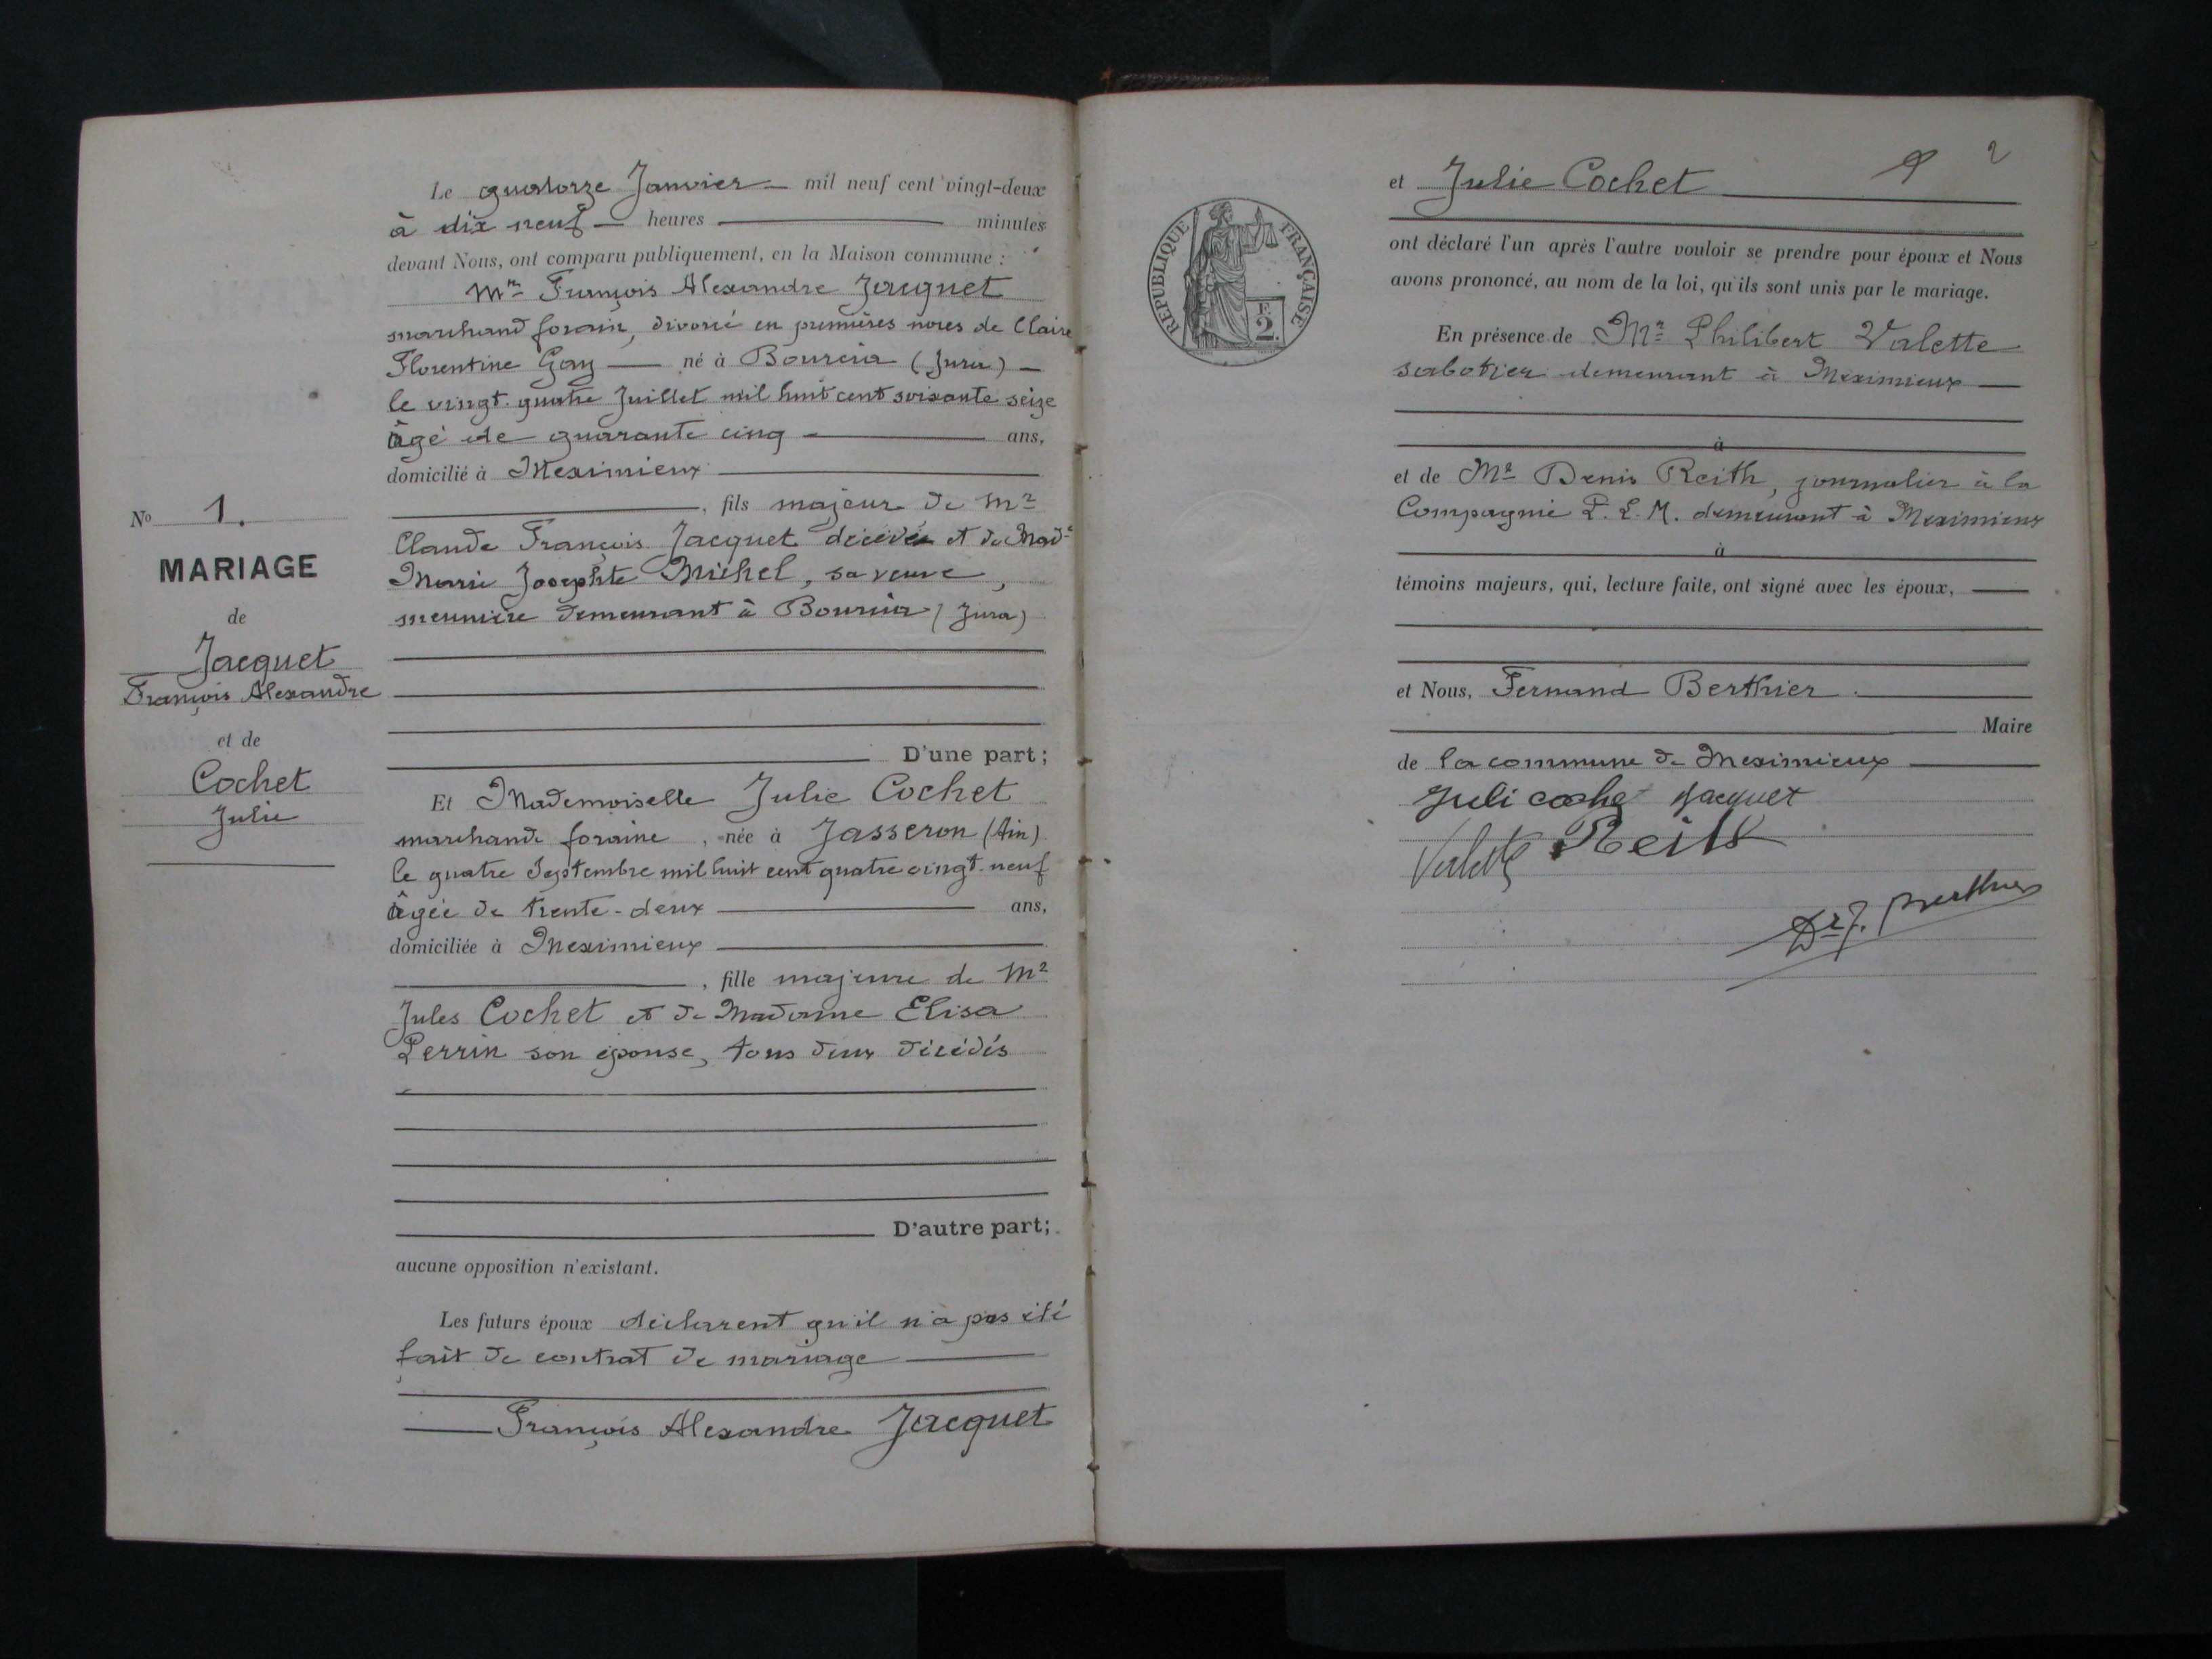 Le quatorze Janvier mil neuf cent vingt-deux
à dix neuf heures minutes
devant Nous, ont comparu publiquement, en la Maison commune :
Mr François Alexandre Jacquet
marchand forain, divorcé en premières noces de Claire
Florentine Gay né à Bourcia (Jura)
le vingt-quatre Juillet mil huit cent soixante seize
âgé de quarante cinq ans,
domicilié à Meximieux
, fils majeur de Mr
Claude François Jacquet décédé et de Made
Marie Josephte Michel, sa veuve,
meunière demeurant à Bourcia (Jura)
D'une part ;
No 1.
MARIAGE
de
Jacquet
François Alexandre
et de
Cochet
Julie
Et Mademoiselle Julie Cochet
marchande foraine, née à Jasseron (Ain)
le quatre Septembre mil huit cent quatre vingt-neuf
âgée de trente-deux ans,
domiciliée à Meximieux
, fille majeure de Mr
Jules Cochet et de Madame Elisa
Perrin son épouse, tous deux décédés
D'autre part ;
aucune opposition n'existant.
Les futurs époux déclarent qu'il n'a pas été
fait de contrat de mariage
François Alexandre Jacquet
2
RÉPUBLIQUE FRANÇAISE
F.
2.
et Julie Cochet
ont déclaré l'un après l'autre vouloir se prendre pour époux et Nous
avons prononcé, au nom de la loi, qu'ils sont unis par le mariage.
En présence de Mr Philibert Valette
sabotier demeurant à Meximieux
à
et de Mr Denis Reith, journalier à la
Compagnie P. L. M. demeurant à Meximieux
à
témoins majeurs, qui, lecture faite, ont signé avec les époux,
et Nous, Fernand Berthier
Maire
de la commune de Meximieux
Juli coche Jacquet
Valette Reith
Dr F. Berthier